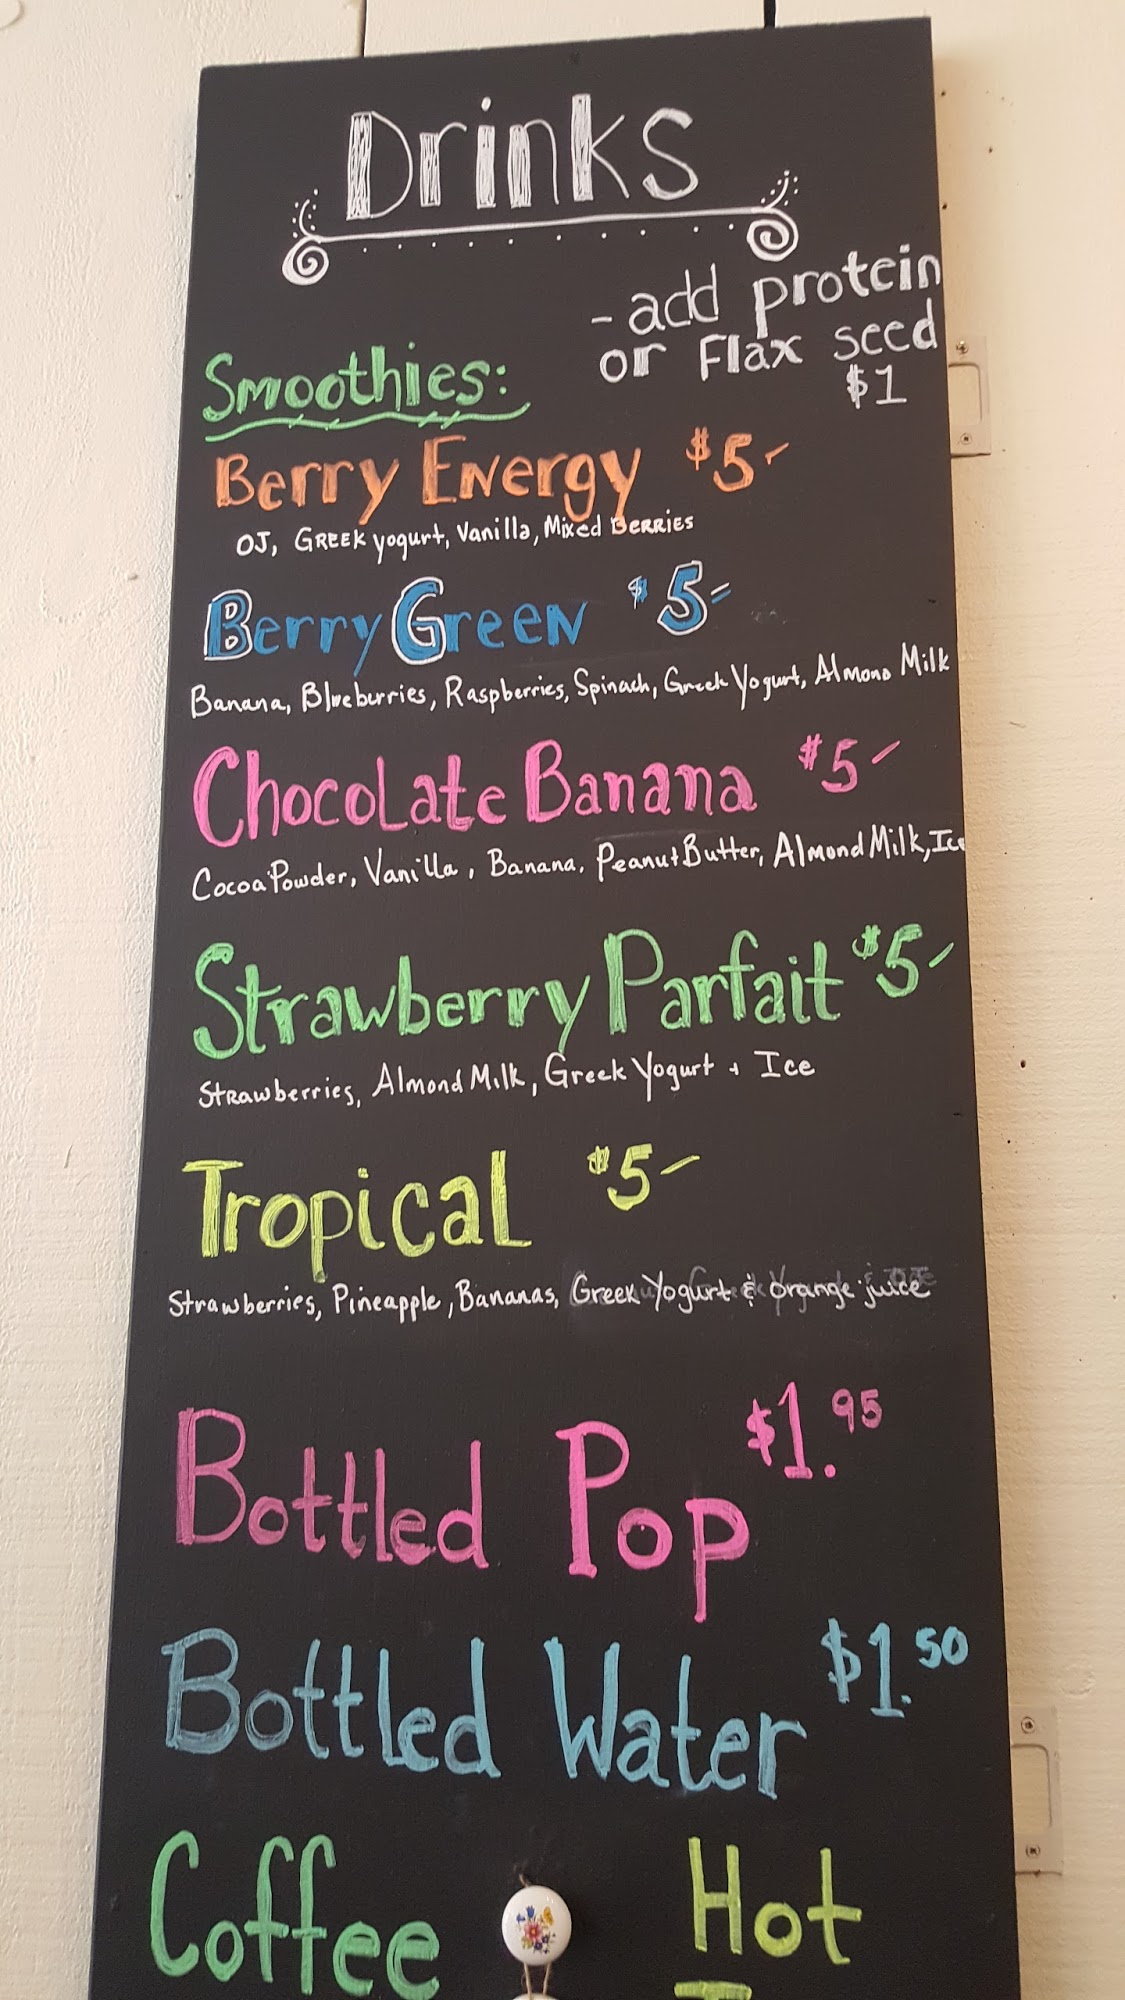 Drinks
- add protein
or Flax seed
$1
Smoothies:
Berry Energy $5-
OJ, Greek yogurt, Vanilla, Mixed Berries
Berry Green $5-
Banana, Blueberries, Raspberries, Spinach, Greek Yogurt, Almond Milk
Chocolate Banana $5-
Cocoa Powder, Vanilla, Banana, Peanut Butter, Almond Milk, Ice
Strawberry Parfait $5-
Strawberries, Almond Milk, Greek Yogurt + Ice
Tropical $5-
Strawberries, Pineapple, Bananas, Greek Yogurt & orange juice
Bottled Pop $1.95
Bottled Water $1.50
Coffee Hot